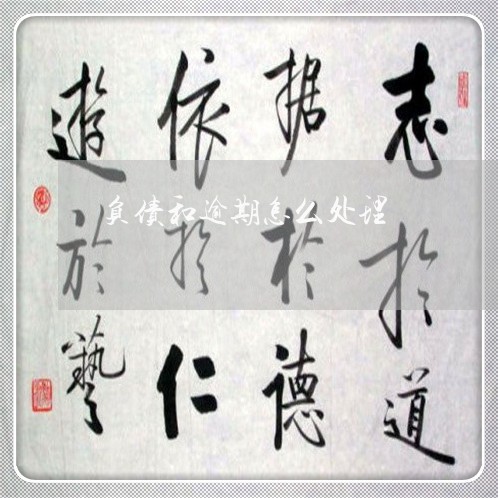 志扵道
据扵德
依扵仁
遊於藝
负债和逾期怎么处理